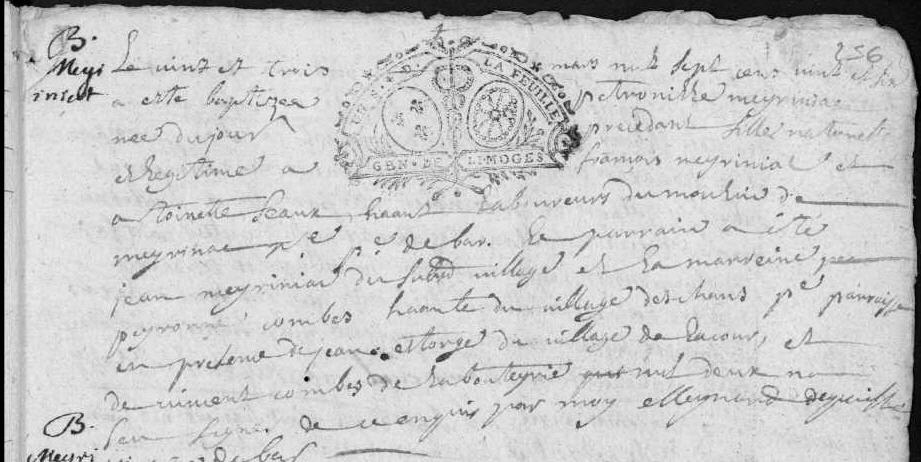 B.
Meyri
niat
256
LA FEUILLE
GEN. DE LIMOGES
Le vint et trois mars mil sept cens vint et six
a este baptizea petronille meyriniac
née du jour precedant fille naturelle
et legitime a françois meyriniat et
a toinette seaux haant laboureurs du moulin de
meyrinac pe pe de bar. Le parrain a été
jean meyriniat du village et la marreine
peyronne combes haante du village des chaus pe parroisse
en presence de jean estorge du village de lacour, et
de vincent combes de la bouteyrie qui nil deux no
seu signer de ce enquis par moy
B.
Meyri
de bar